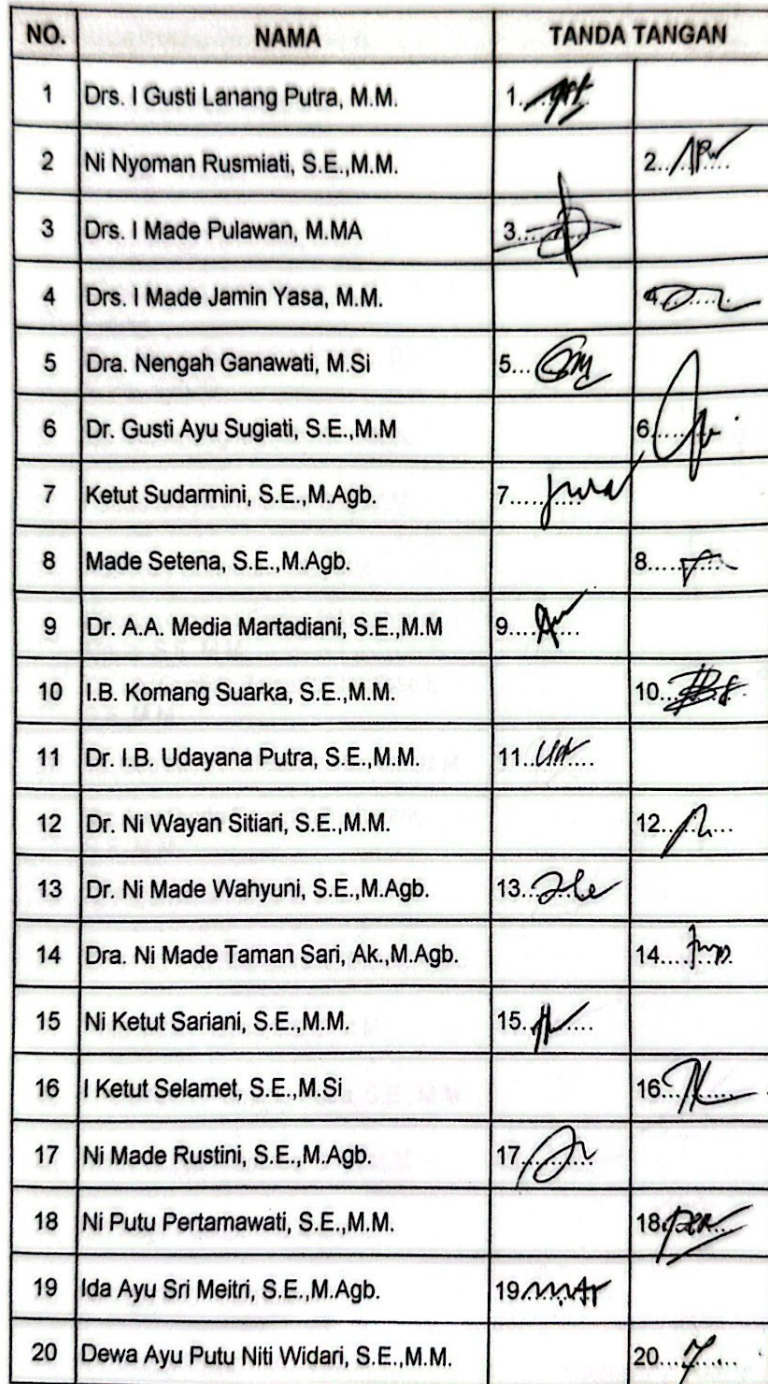 NO. NAMA TANDA TANGAN
1 Drs. I Gusti Lanang Putra, M.M. 1...........
2 Ni Nyoman Rusmiati, S.E.,M.M. 2...........
3 Drs. I Made Pulawan, M.MA 3...........
4 Drs. I Made Jamin Yasa, M.M. 4...........
5 Dra. Nengah Ganawati, M.Si 5...........
6 Dr. Gusti Ayu Sugiati, S.E.,M.M 6...........
7 Ketut Sudarmini, S.E.,M.Agb. 7...........
8 Made Setena, S.E.,M.Agb. 8...........
9 Dr. A.A. Media Martadiani, S.E.,M.M 9...........
10 I.B. Komang Suarka, S.E.,M.M. 10...........
11 Dr. I.B. Udayana Putra, S.E.,M.M. 11...........
12 Dr. Ni Wayan Sitiari, S.E.,M.M. 12...........
13 Dr. Ni Made Wahyuni, S.E.,M.Agb. 13...........
14 Dra. Ni Made Taman Sari, Ak.,M.Agb. 14...........
15 Ni Ketut Sariani, S.E.,M.M. 15...........
16 I Ketut Selamet, S.E.,M.Si 16...........
17 Ni Made Rustini, S.E.,M.Agb. 17...........
18 Ni Putu Pertamawati, S.E.,M.M. 18...........
19 Ida Ayu Sri Meitri, S.E.,M.Agb. 19
20 Dewa Ayu Putu Niti Widari, S.E.,M.M. 20...........